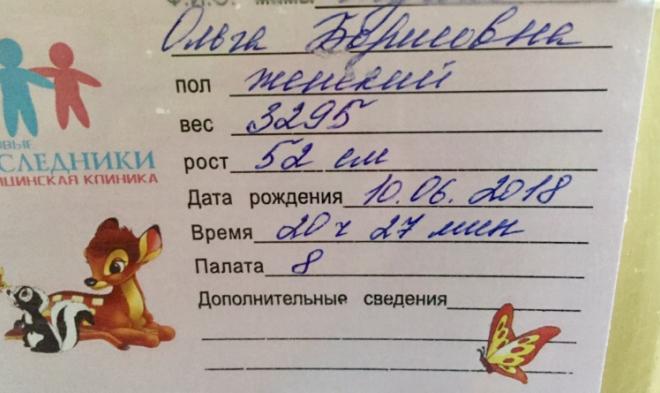 Ф.И.О. мамы
Ольга Борисовна
пол женский
вес 3295
рост 52 см
Дата рождения 10.06.2018
Время 20 ч 27 мин
Палата 8
Дополнительные сведения
ОВЫЕ
СЛЕДНИКИ
ИЦИНСКАЯ КЛИНИКА